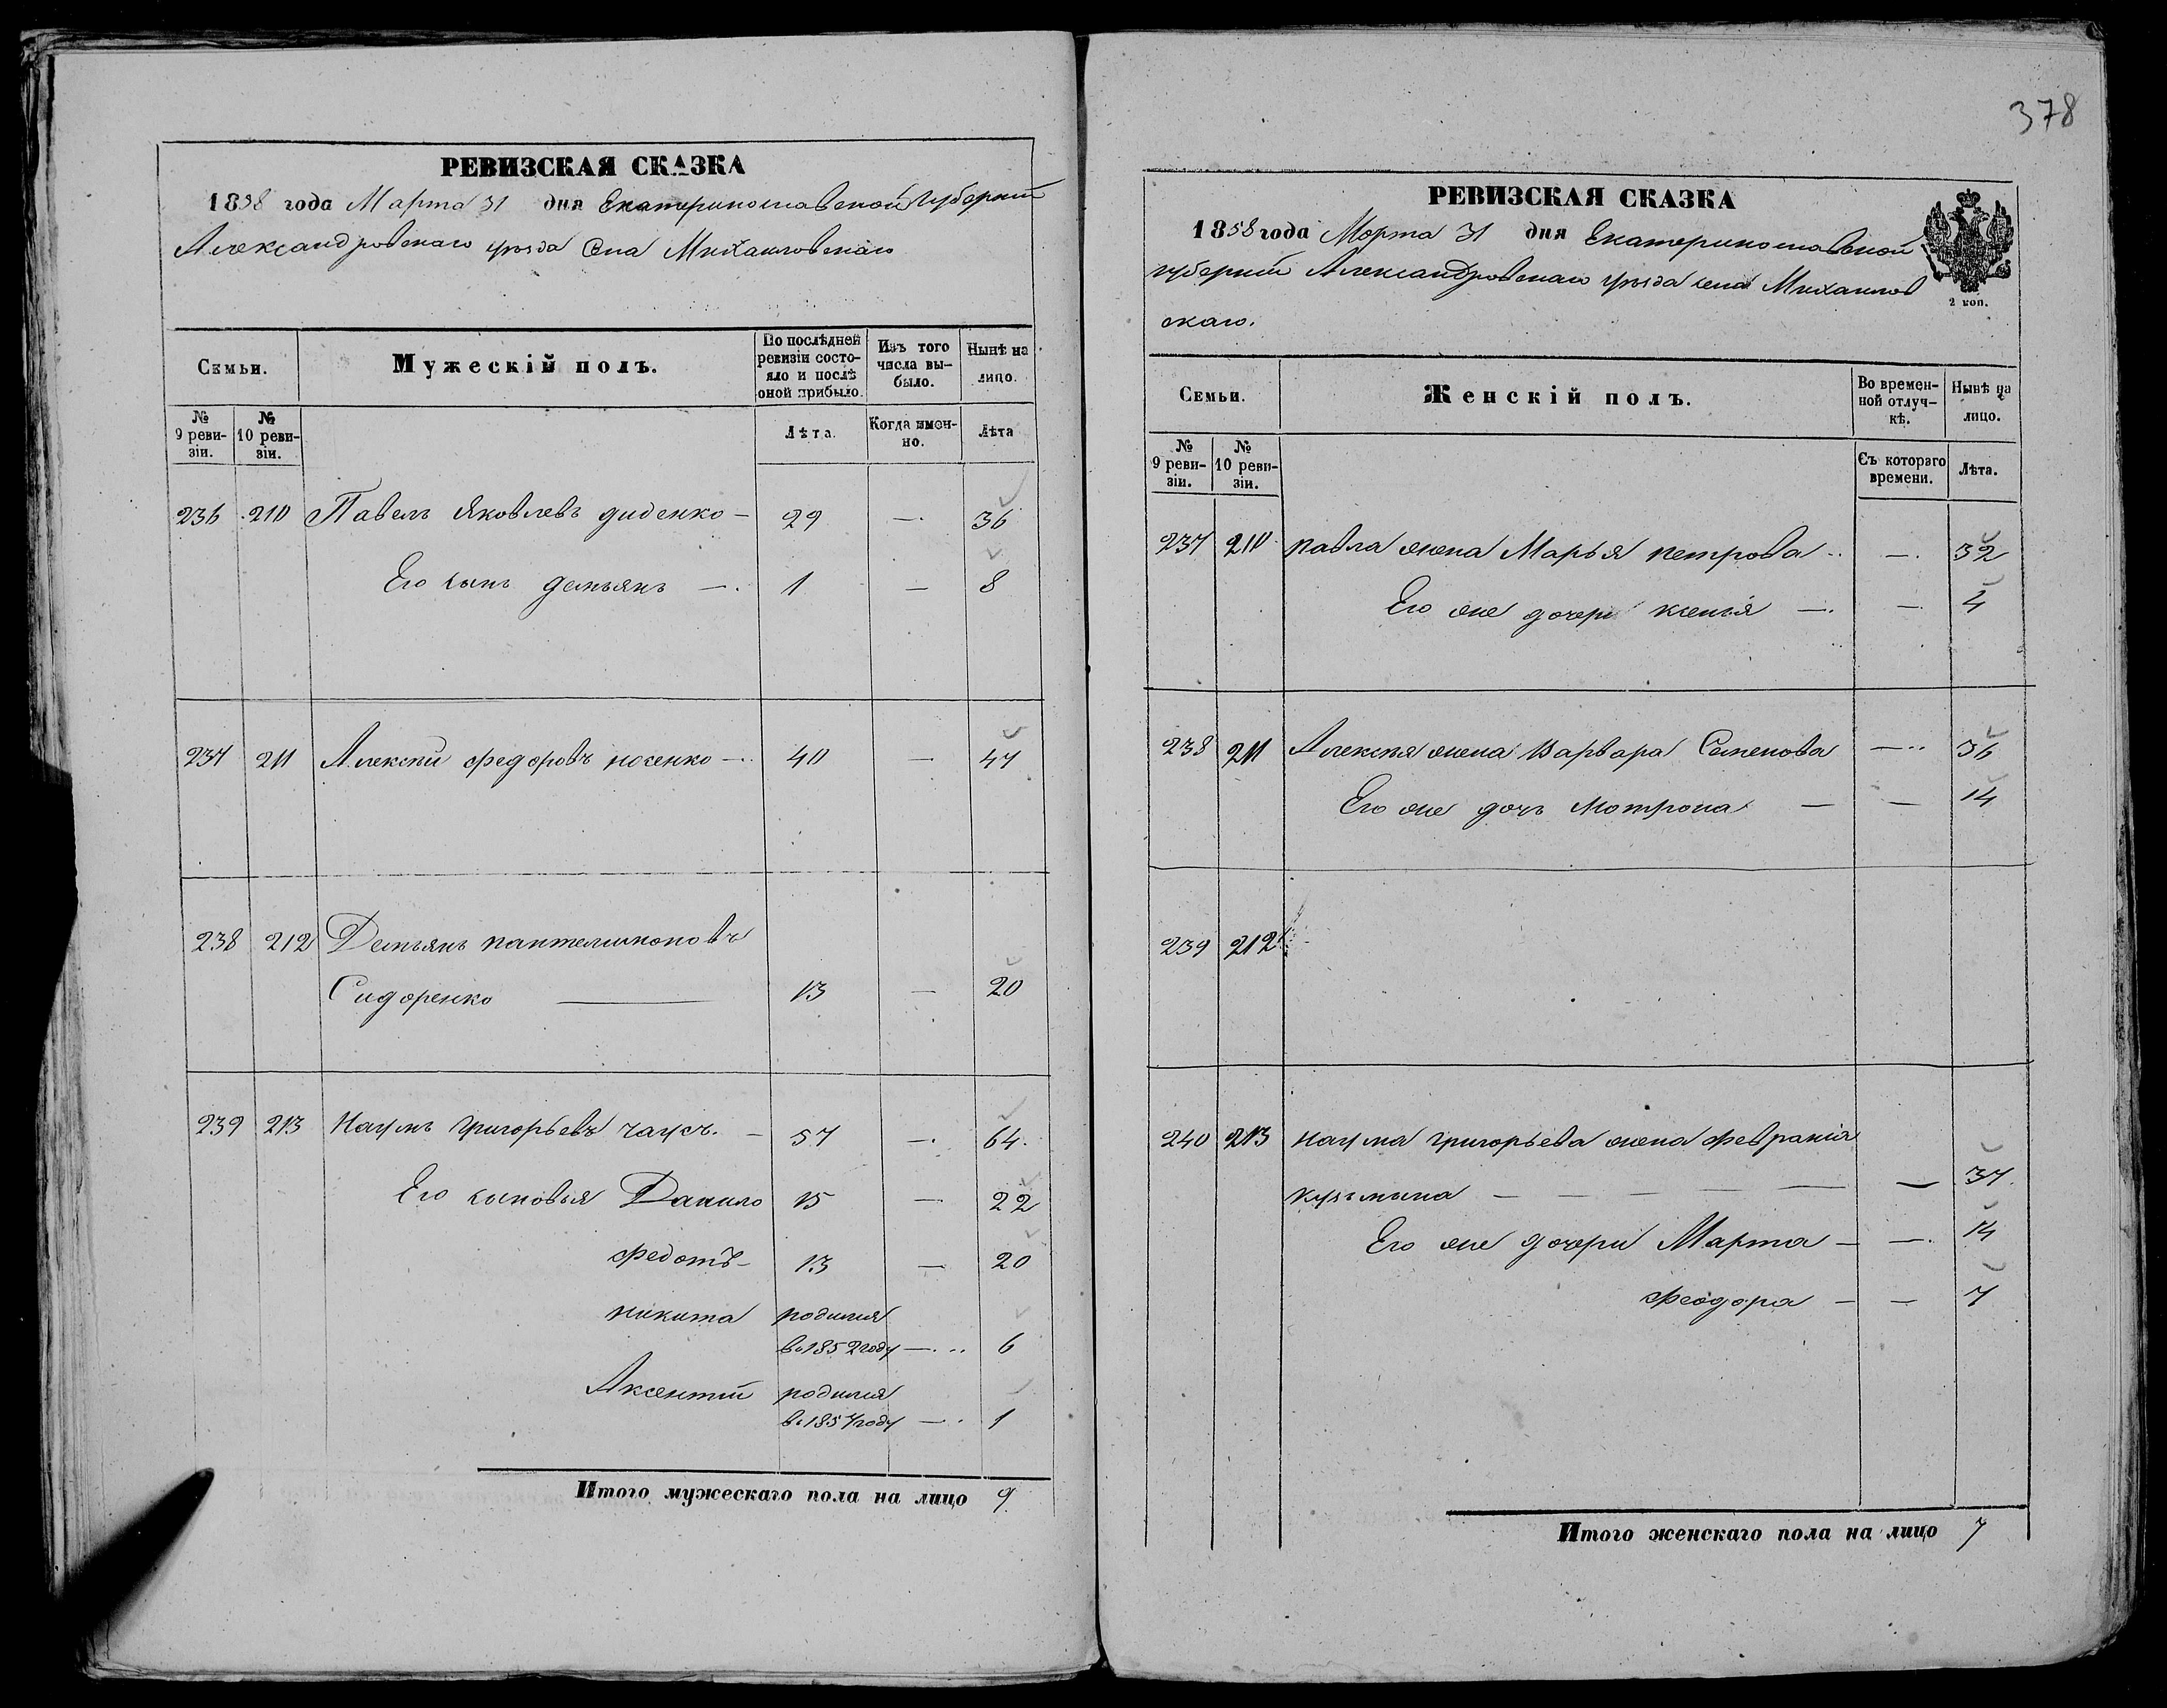 378
РЕВИЗСКАЯ СКАЗКА
1858 года Марта 31 дня Екатеринославской Губернии
Александровскаго уѣзда Села Михайловскаго
Семьи.
Мужескій полъ.
По послѣдней ревизіи состояло и послѣ оной прибыло.
Изъ того числа выбыло.
Нынѣ на лицо.
№ 9 ревизіи.
№ 10 ревизіи.
Лѣта.
Когда именно.
Лѣта
236 210 Павелъ Яковлевъ диденко — 29 — 36
Его сынъ демьянъ — 1 — 8
237 211 Алексѣй федоровъ носенко — 40 — 47
238 212 Демьянъ пантелимоновъ
Сидоренко — 13 — 20
239 213 Наумъ Григорьевъ чаусъ. — 57 — 64.
Его сыновья Данило 15 — 22
федотъ — 13 — 20
никита родился
в 1852 году — 6
Аксентій родился
в 1857 году — 1
Итого мужескаго пола на лицо 9
РЕВИЗСКАЯ СКАЗКА
1858 года Марта 31 дня Екатеринославской
губерніи Александровскаго уѣзда села Михайлов
скаго.
2 коп.
Семьи.
Женскій полъ.
Во временной отлучкѣ.
Нынѣ на лицо.
№ 9 ревизіи.
№ 10 ревизіи.
Съ котораго времени.
Лѣта.
237 210 павла жена Марья петрова — — 32
Его же дочери ксенія — — 4
238 211 Алексѣя жена Варвара Семенова — 36
Его же дочь Мотрона — — 14
239 212
240 213 наума григорьева жена февранія
кузьмина — — — — — — 37
Его же дочери Марта — — 14
феодора — — 7
Итого женскаго пола на лицо 7